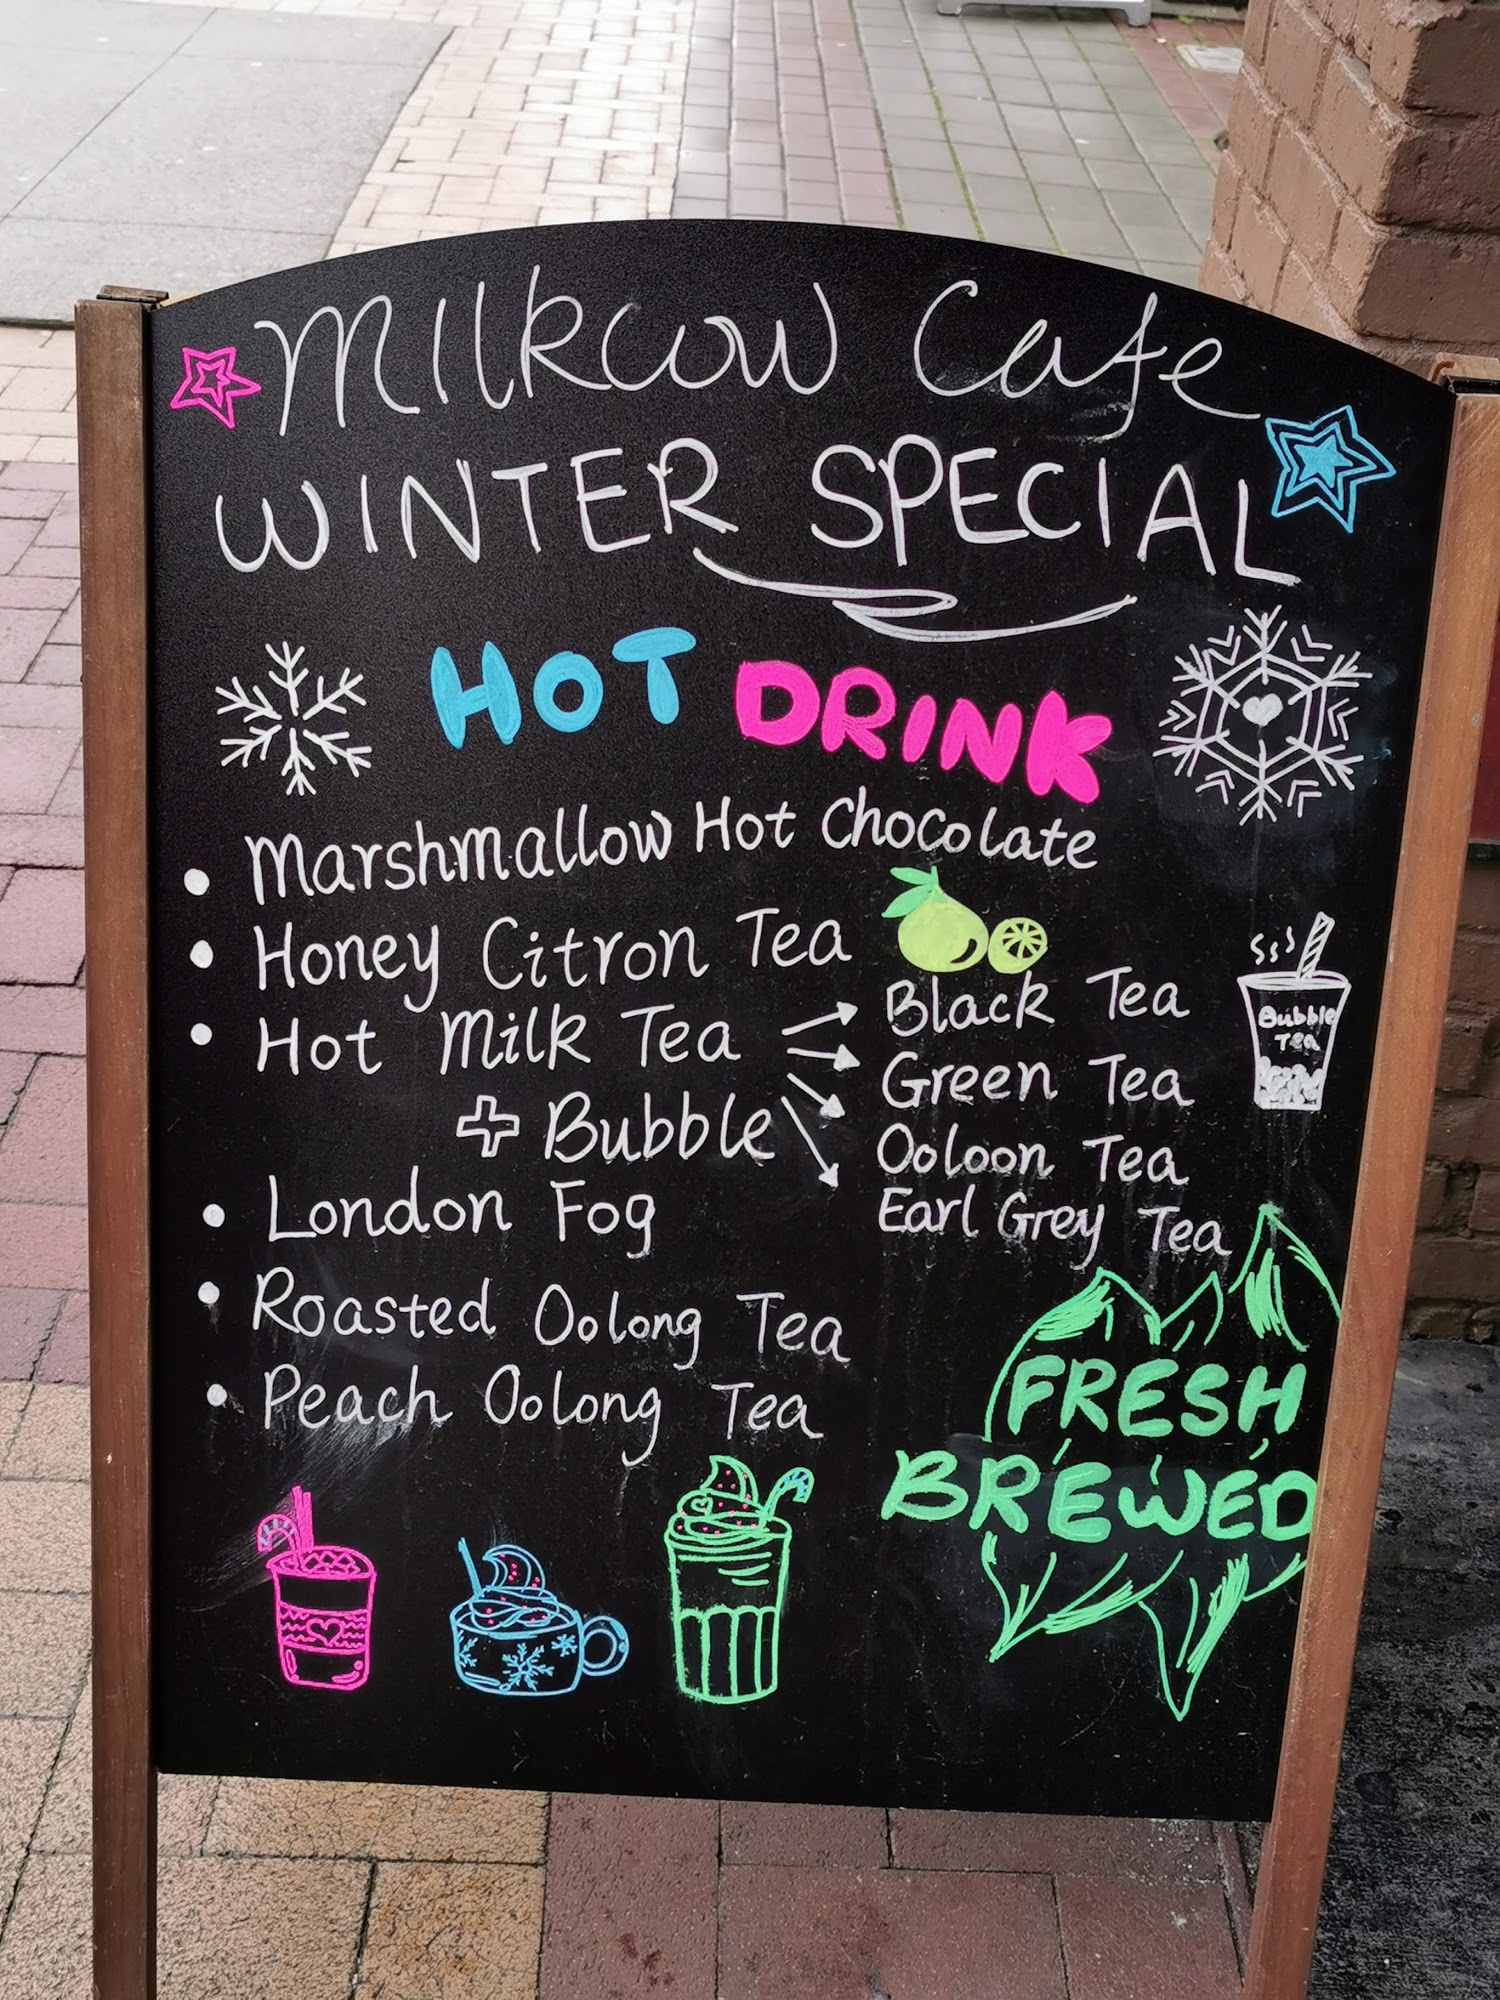 Milkcow Cafe
WINTER SPECIAL
HOT DRINK
• Marshmallow Hot Chocolate
• Honey Citron Tea
• Hot Milk Tea
+ Bubble
Black Tea
Green Tea
Ooloon Tea
Earl Grey Tea
Bubble
Tea
• London Fog
• Roasted Oolong Tea
• Peach Oolong Tea
FRESH
BREWED